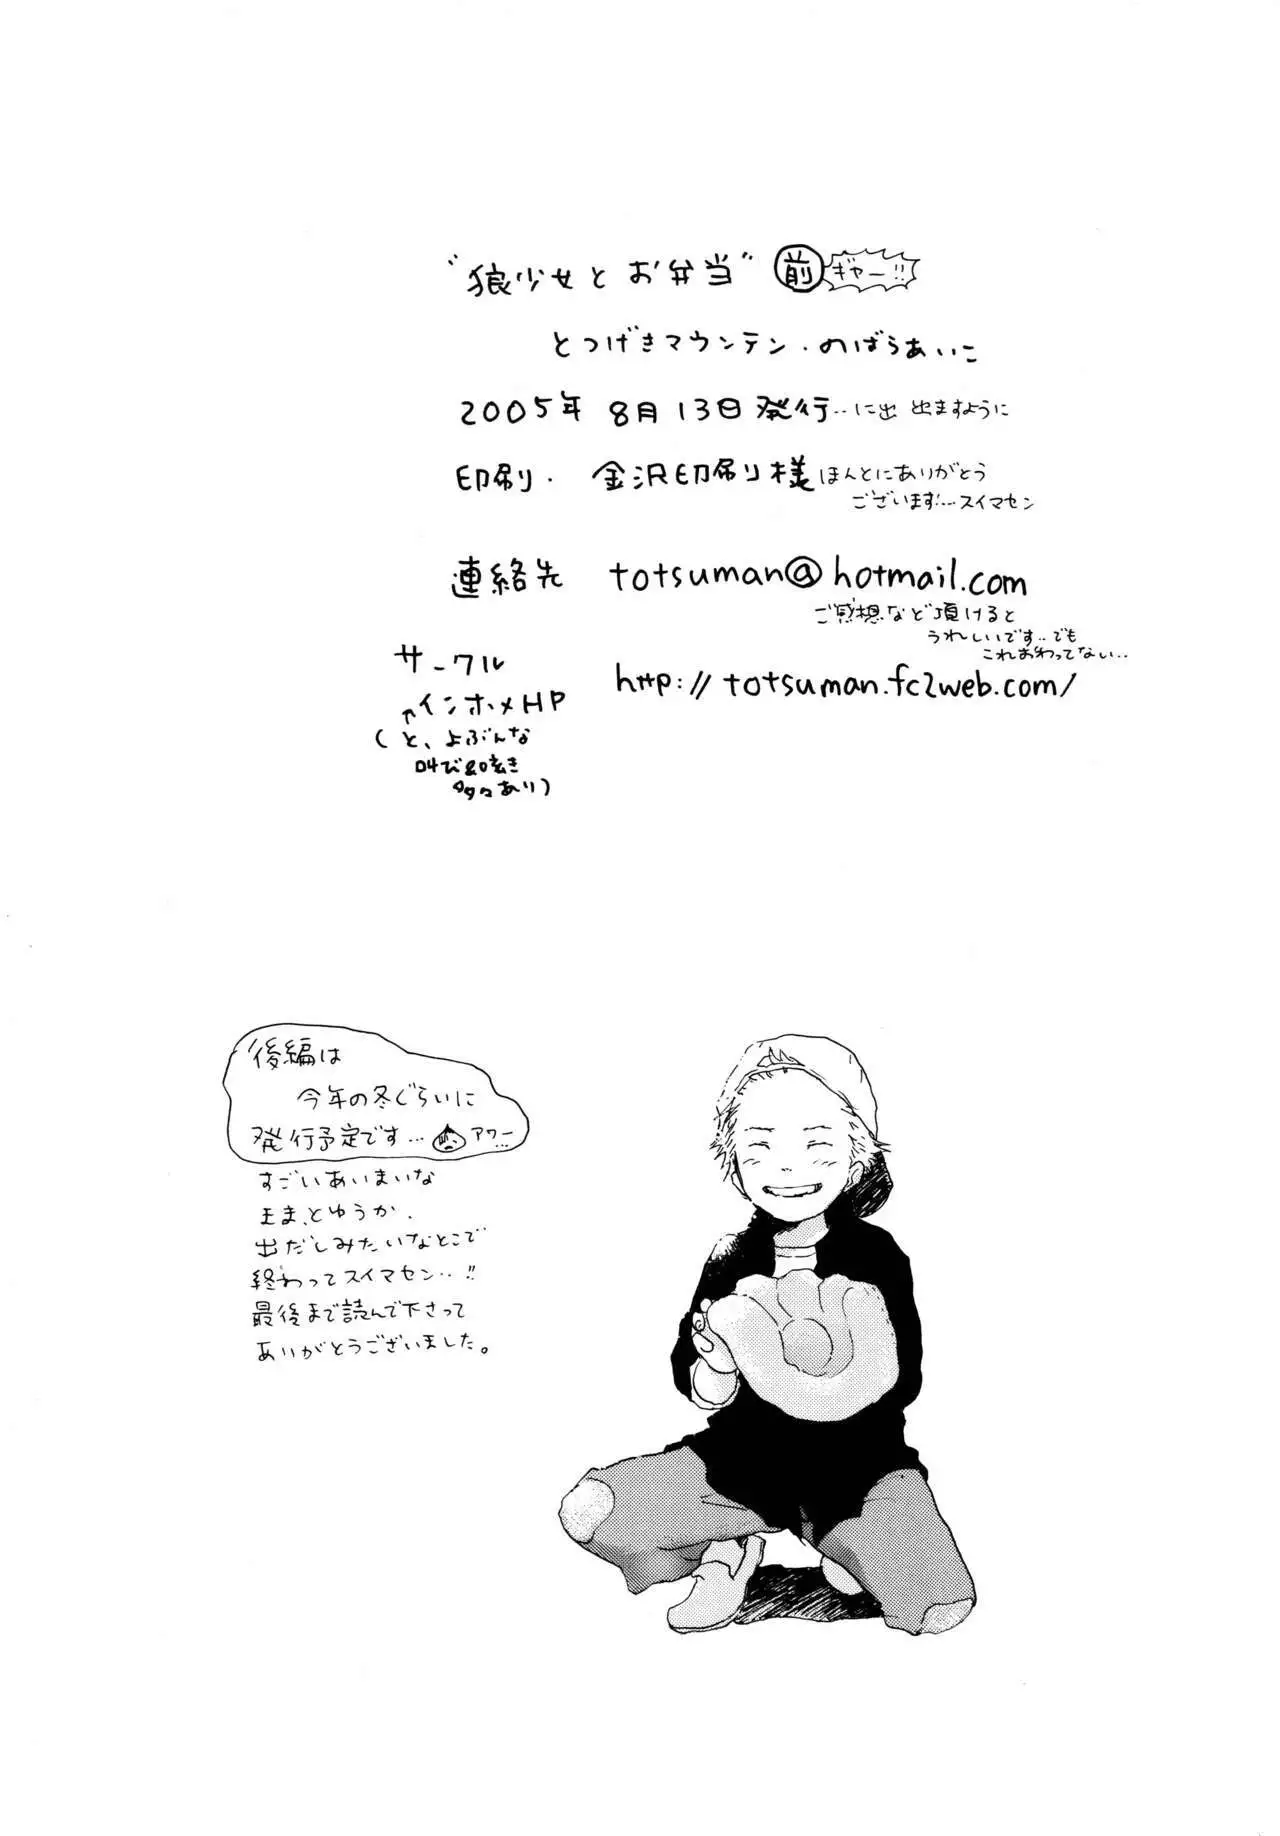 "狼少女とお弁当" 前 ギャー!!
とつげきマウンテン・のばらあいこ
2005年 8月13日発行‥に出 出ますように
印刷・ 金沢印刷り様 ほんとにありがとう
ございます!…スイマセン
連絡先 totsuman@hotmail.com
ご感想など頂けると
うれしいです‥でも
これおわってない‥
サークル
↑インホメHP http://totsuman.fc2web.com/
(と、よぶんな
叫び&呟き
多々あり)
後編は
今年の冬ぐらいに
発行予定です… アワー…
すごいあいまいな
ままとゆうか、
出だしみたいなとこで
終わってスイマセン‥!!
最後まで読んで下さって
ありがとうございました。